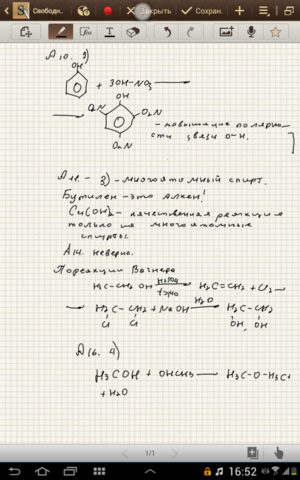 Свободн..
Закрыть
Сохран.
А10. 3)
OH
+ 3OH-NO₂ ⟶
OH
⟶ O₂N NO₂
O₂N
- повышение полярно-
сти связи O-H.
А11. - 3) - многоатомный спирт.
Бутилен - это алкен!
Cu(OH)₂ - качественная реакция
только на многоатомные
спирты.
А14. неверно.
По реакции Вагнера
H₃C-CH₂OH H₂SO₄ t>140 ⟶ H₂C=CH₂ + Cl₂ ⟶
⟶ H₂C-CH₂ + NaOH H₂O ⟶ H₂C-CH₂
Cl Cl OH OH
А16. 4)
H₃COH + OHCH₃ ⟶ H₃C-O-H₃C+
+ H₂O
1/1
16:52